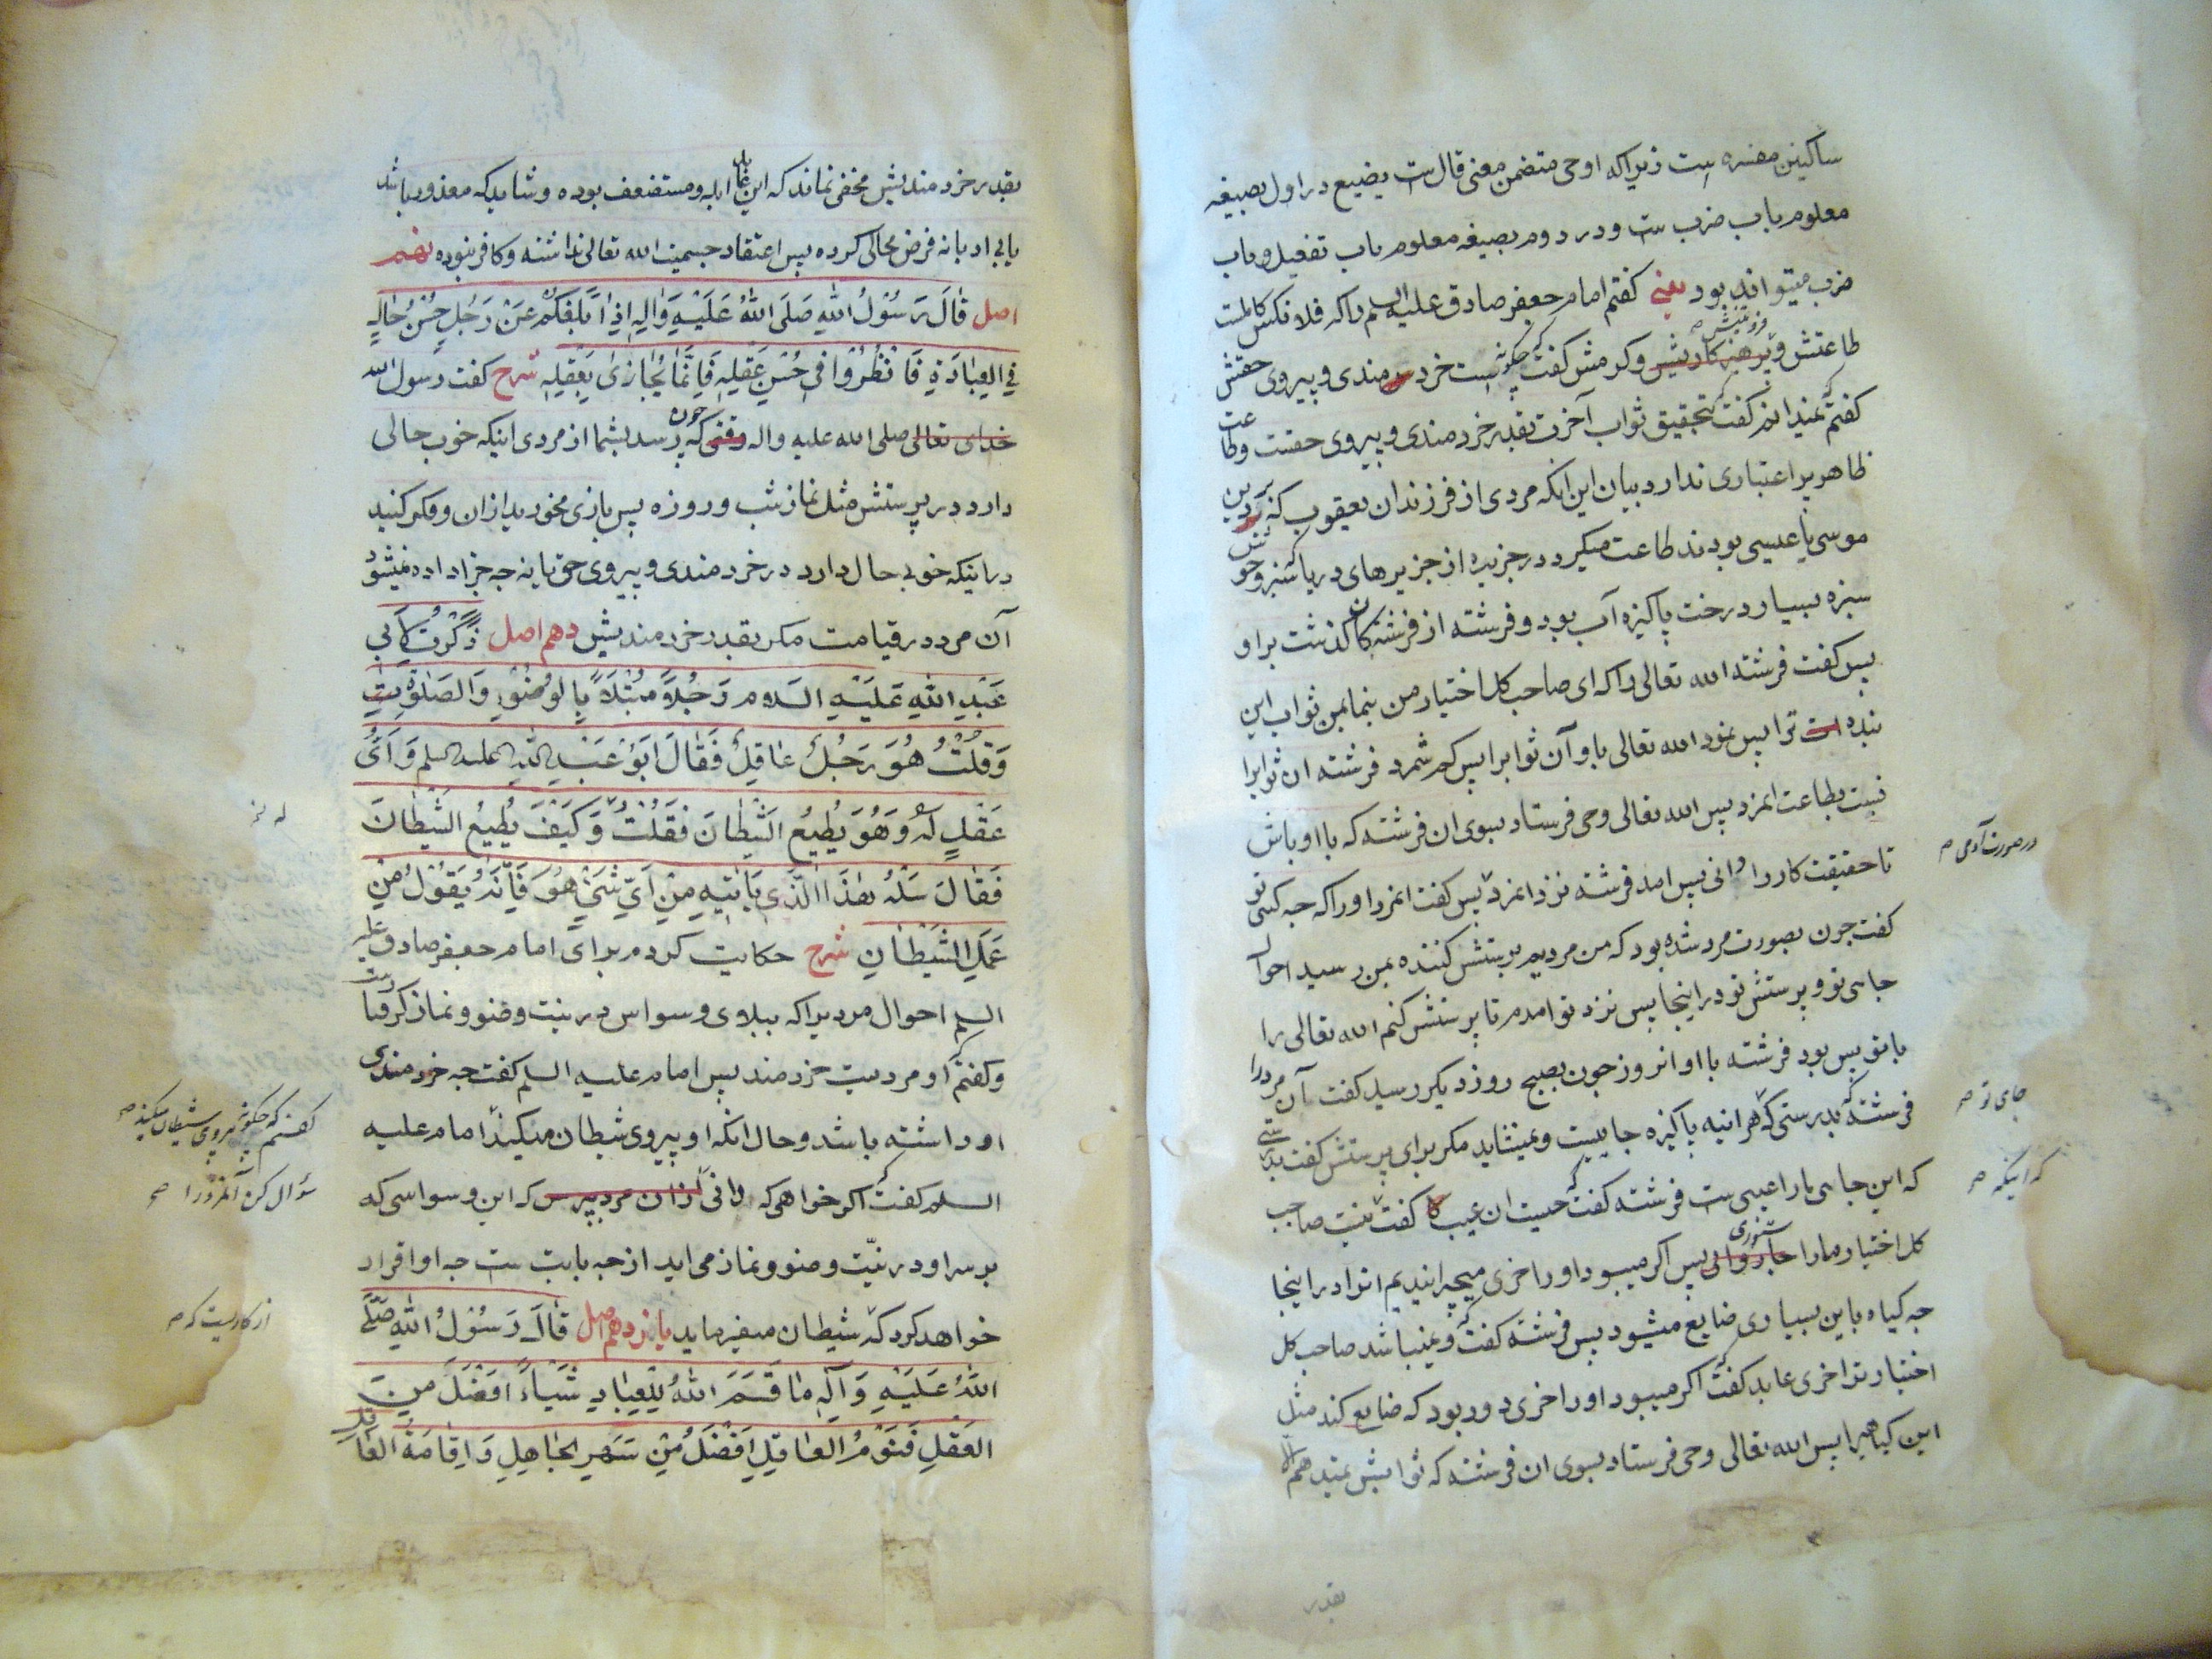 ساکنین مفسره است زیرا که اوحی متضمن معنی قال است یضیع در اول بصیغه
معلوم باب ضرب ست و در دوم بصیغه معلوم باب تفعیل و باب
ضرب میتواند بود یعنی کفتم امام جعفر صادق علیه السلم را که فلانکس کاملست
طاعتش و پرهیزکاریش و کرمش کفت که چکونه است خردمندی و پیروی حقش
کفتم که نمیدانم کفت که تحقیق ثواب آخرت بقدر خردمندی و پیروی حقست و طاعت
ظاهر برا اعتباری ندارد بیان این انکه مردی از فرزندان یعقوب که بر دین
موسی یا عیسی بودند طاعت میکرد در جزیره از جزیرهای دریا که سبز و خوش
سبزه بسیار درخت پاکیزه آب بود و فرشته از فرشتکان کذشت براو
پس کفت فرشته الله تعالی را که ای صاحب کل اختیار من بنما بمن ثواب این
بنده است ترا پس نمود الله تعالی باو آن ثوابرا پس کم شمرد فرشته ان ثوابرا
نسبت بطاعت انمرد پس الله تعالی وحی فرستاد بسوی ان فرشته که با او باش
در صورت آدمی صح
تا حقیقت کار را دانی پس امد فرشته نزد انمرد پس کفت انمرد اورا که چه کسی تو
کفت چون بصورت مرد شده بود که من مردیم پرستش کننده بمن رسید احوال
جاسی تو و پرستش تو در اینجا پس نزد تو امدم تا پرستش کنم الله تعالی را
با تو پس بود فرشته با او انروز چون بصبح روز دیکر رسید کفت آن مرد را
جای تو صح
فرشته که بدرستی که هراینه پاکیزه جاییست و نمیشاید مکر برای پرستش کفت بدرستی
که اینکه صح
که این جاسی مارا عیبی ست فرشته کفت که چیست ان عیب کفت نیست صاحب
کل اختیار مارا ستوری پس اکر میبود اورا خری میچرانیدیم انرا در اینجا
چه کیاه باین بسیاری ضایع میشود پس فرشته کفت که و نمیباشد صاحب کل
اختیار ترا خری عابد کفت که اکر میبود اورا خری دور بود که ضایع کند مثل
این کیاهیرا پس الله تعالی وحی فرستاد بسوی ان فرشته که ثوابش نمیدهم الا
بقدر
بقدر خردمندیش مخفی نماند که این عابد ابله و مستضعف بوده و شاید که معذور باشد
یا بی ادبانه فرض محالی کرده پس اعتقاد جسمیت الله تعالی نداشته و کافر نبوده نهم
اصل قَالَ رَسُوْلُ اللهِ صَلَی اللهُ عَلَیْهِ وَالِهِ اِذَا بَلَغَکُمْ عَنْ رَجُلٍ حُسْنُ حَالٍ
فِی الْعِبَادَةِ فَانْظُرُوْا فِی حُسْنِ عَقْلِهِ فَاِنَّمَا یُجَازٰی بِعَقْلِهِ شرح کفت رسول الله
خدای تعالی صلی الله علیه واله وقتی که چون رسد بشما از مردی اینکه خوب حالی
دارد در پرستش مثل نماز شب و روزه پس بازی مخورید ازان و فکر کنید
در اینکه خوبی حال دارد در خردمندی و پیروی حق یا نه چه جزا داده نمیشود
آن مرد در قیامت مکر بقدر خردمندیش دهم اصل ذَکَرْتُ لِاَبِی
عَبْدِ اللهِ عَلَیْهِ السَلام رَجُلاً مُبْتَلاً بِالْوُضُوْءِ وَالصَلٰوةِ
وَقُلْتُ هُوَ رَجُلٌ عَاقِلٌ فَقَالَ اَبُوْ عَبْدِ اللّهِ علیه السلم وَاَیُّ
عَقْلٍ لَهُ وَهُوَ یُطِیْعُ الشَّیْطَانَ فَقُلْتُ وَکَیْفَ یُطِیْعُ الشَّیْطَانَ
له نز
فَقَالَ سَلْهُ هٰذَا الَّذِی یَاْتِیْهِ مِنْ اَیِّ شَیْءٍ هُوَ فَاِنَّهُ یَقُوْلُ مِنْ
عَمَلِ الشَیْطَانِ شرح حکایت کردم برای امام جعفر صادق علیه
السلم احوال مردیرا که ببلای وسواس در نیت وضو و نماز کرفتارست
و کفتم که او مردیست خردمند پس امام علیه السلم کفت چه خردمندی
اورا شته باشد و حال انکه او پیروی شیطان میکند امام علیه
کفتم که چکونه پیروی شیطان میکند صح
السلم کفت که اکر خواهی که دانی ازان مرد بپرس که این وسواسی که
سؤال کن آنمرد را صح
بر سر او در نیّت وضو و نماز می اید از چه بابت ست چه او اقرار
خواهد کرد که شیطان میفرماید یازدهم اصل قَالَ رَسُوْلُ اللهِ صَلّی
از کاریست که صح
اللهُ عَلَیْهِ وَآلِهِ مَا قَسَمَ اللهُ لِلْعِبَادِ شَیْئاً اَفْضَلَ مِنَ
العَقْلِ فَنَوْمُ العَاقِلِ اَفْضَلُ مِنْ سَهَرِ الجَاهِلِ وَ اِقَامَةُ العَاقِلِ